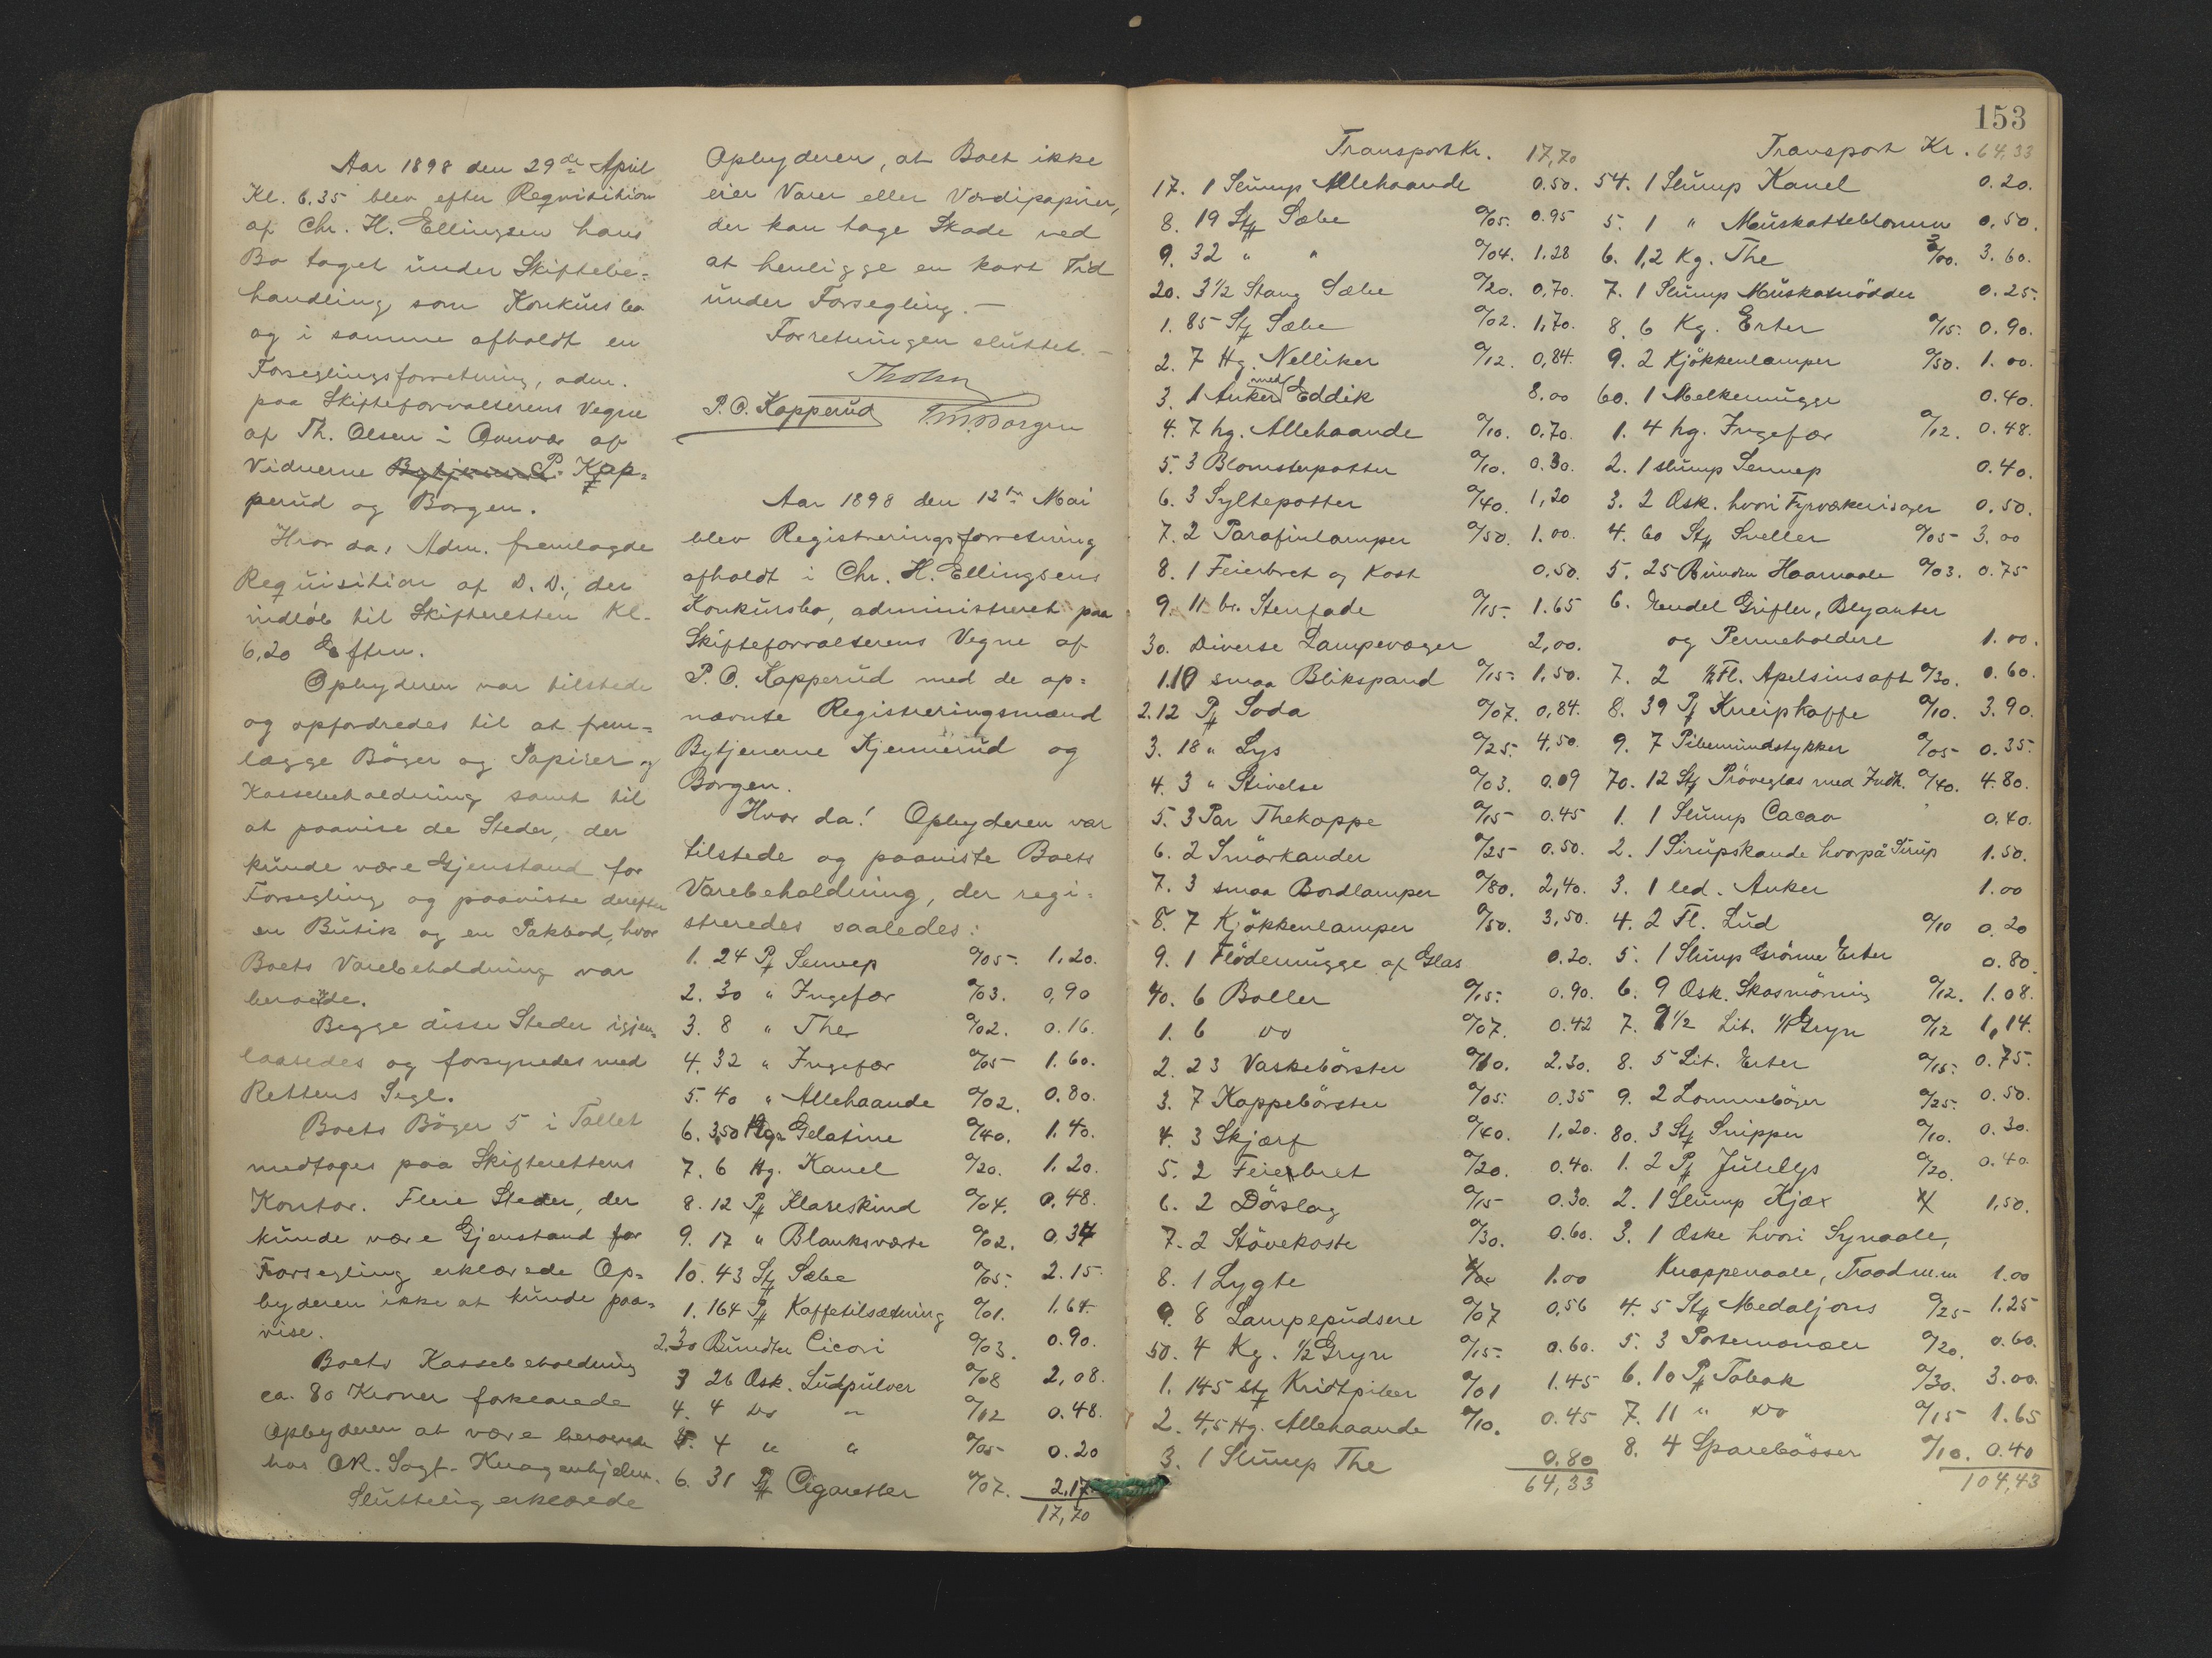 Aar 1898 den 29de April
Kl. 6.35 blev efter Reqvisition
af Chr. H. Ellingsen hans
Bo taget under Skiftebe=
handling som Konkursbo
og i samme afholdt en
Forseglingsforretning, adm.
paa Skifteforvalterens Vegne
af Th. Olsen i Overvær af
Vidnerne P. Kap=
perud og Borgen.
Hvor da, Adm. fremlagde
Requisition af D. D., der
indløb til Skifteretten Kl.
6,20 Eftm.
Opbyderen var tilstede
og opfordredes til at frem=
lægge Bøger og Papirer og
Kassebeholdning samt til
at paavise de Steder, der
kunde være Gjenstand for
Forsegling og paaviste derefter
en Butik og en Pakbod, hvor
Boets Varebeholdning var
beroende.
Begge disse Steder igjen=
laasedes og forsynedes med
Rettens Segl.
Boets Bøger 5 i Tallet
medtoges paa Skifterettens
Kontor. Flere Steder, der
kunde være Gjenstand for
Forsegling erklærede Op=
byderen ikke at kunde paa=
vise.
Boets Kassebeholdning
ca. 80 Kroner forklarede
Opbyderen at være beroende
hos OR. Sagf. Knagenhjelm.
Sluttelig erklærede
Opbyderen, at Boet ikke
eier Varer eller Værdipapirer,
der kan tage Skade ved
at henligge en kort Tid
under Forsegling. —
Forretningen sluttet. —
ThOlsen
P. O. Kapperud Borgen
Aar 1898 den 12te Mai
blev Registreringsforretning
afholdt i Chr. H. Ellingsens
Konkursbo, administreret paa
Skifteforvalterens Vegne af
P. O. Kapperud med de op=
nævnte Registreringsmænd
Bytjenerne Kjennerud og
Borgen.
Hvor da! Opbyderen var
tilstede og paaviste Boets
Varebeholdning, der regi=
streredes saaledes:
1. 24 Pk Sennep a/05. 1,20.
2. 30 " Ingefær a/03. 0,90
3. 8 " The a/02. 0.16.
4. 32 " Ingefær a/05 1.60.
5. 40 " Allehaande a/02. 0.80.
6. 3,50 Hg. Gelatine a/40. 1.40.
7. 6 Hg. Kanel a/20. 1.20.
8. 12 Pk Klareskind a/04. 0,48.
9. 17 " Blanksværte a/02. 0,34
10. 43 Stk Sæbe a/05. 2.15.
1. 164 Pk Kaffetilsætning a/01. 1.64.
2. 30 Bundter Cicori a/03. 0.90.
3 26 Æsk. Ludpulver a/08 2,08.
4. 4 do " a/12 0.48.
5. 4 " " a/05 0.20
6. 31 Pk Cigaretter a/07. 2.17.
17,70
153
Transport Kr. 17,70
17. 1 Slump Allehaande 0.50.
8. 19 Stk Sæbe a/05. 0.95
9. 32 " " a/04. 1,28
20. 3 1/2 Stang Sæbe a/20. 0,70.
1. 85 Stk Sæbe a/02. 1,70.
2. 7 Hg. Nelliker a/12. 0,84.
3. 1 Anker med Eddik 8.00
4. 7 hg. Allehaande a/10. 0,70.
5. 3 Blomsterpotter a/10. 0.30.
6. 3 Syltepotter a/40. 1,20
7. 2 Parafinlamper a/50. 1.00.
8. 1 Feiebret og Kost 0,50.
9. 11 br. Stenfade a/15. 1.65
30. Diverse Lampevæger 2,00.
1. 10 smaa Blikspand a/15. 1,50.
2. 12 Pk Soda a/07. 0,84.
3. 18 " Lys a/25. 4,50.
4. 3 " Stivelse a/03. 0.09
5. 3 Par Thekoppe a/15 0.45
6. 2 Smörkander a/25 0.50.
7. 3 smaa Bordlamper a/80. 2,40.
8. 7 Kjökkenlamper a/50. 3,50.
9. 1 Flödemugge af Glas 0.20.
40. 6 Boller a/15. 0.90.
1. 6 do a/07. 0.42
2. 23 Vaskebörster a/10. 2.30.
3. 7 Koppebörster a/05. 0.35
4. 3 Skjærf a/40. 1,20.
5. 2 Feiebret a/20. 0.40.
6. 2 Dörslag a/15 0.30.
7. 2 Stövekoste a/30. 0.60.
8. 1 Lygte 1.00
9. 8 Lampepudsere a/07 0,56
50. 4 Kg. 1/2 Gryn a/15. 0.60.
1. 145 Stk Kridtpiber a/01 1.45
2. 4,5 Hg. Allehaande a/10. 0.45
3. 1 Slump The 0.80
64,33
Transport Kr. 64,33
54. 1 Slump Kanel 0.20.
5. 1 " Muskatteblomm 0,50.
6. 1,2 Kg. The 3/00. 3.60.
7. 1 Slump Muskatnödder 0.25.
8. 6 Kg. Erter a/15. 0.90.
9. 2 Kjökkenlamper a/50. 1.00.
60. 1 Melkemugge 0.40.
1. 4 hg. Ingefær a/12. 0.48.
2. 1 slump Sennep 0.40.
3. 2 Æsk. hvori Fyrværkerisager 0.50.
4. 60 Stk Sveller a/05 3.00
5. 25 Bundter Haarnaale a/03. 0.75
6. Endel Grifler, Blyanter
og Penneholdere 1.00.
7. 2 1/2 Fl. Apelsinsaft a/30. 0.60.
8. 39 Pk Kneiphaffe a/10. 3.90.
9. 7 Pibemundstykker a/05 0.35.
70. 12 Stk Pröveglas med Indh. a/40. 4.80.
1. 1 Slump Cacao 0.40.
2. 1 Sirupskande hvorpå Sirup 1.50.
3. 1 led. Anker 1.00
4. 2 Fl. Lud a/10 0.20
5. 1 Slump Grönne Erter 0.80.
6. 9 Æsk. Skosmörning a/12. 1.08.
7. 9 1/2 Lit. 1/1 Gryn a/12 1,14.
8. 5 Lit. Erter a/15. 0.75.
9. 2 Lommebøger a/25. 0.50.
80. 3 Stk Snipper a/10. 0.30.
1. 2 Pk Julelys a/20. 0.40.
2. 1 Slump Kjæx 1,50.
3. 1 Æske hvori Synaale,
Knappenaale, Traad m.m 1.00
4. 5 Stk Medaljons a/25 1.25
5. 3 Portemonæer a/20. 0.60.
6. 10 Pk Tobak a/30. 3.00.
7. 11 " do a/15 1.65
8. 4 Sparebösser a/10. 0.40
104,43